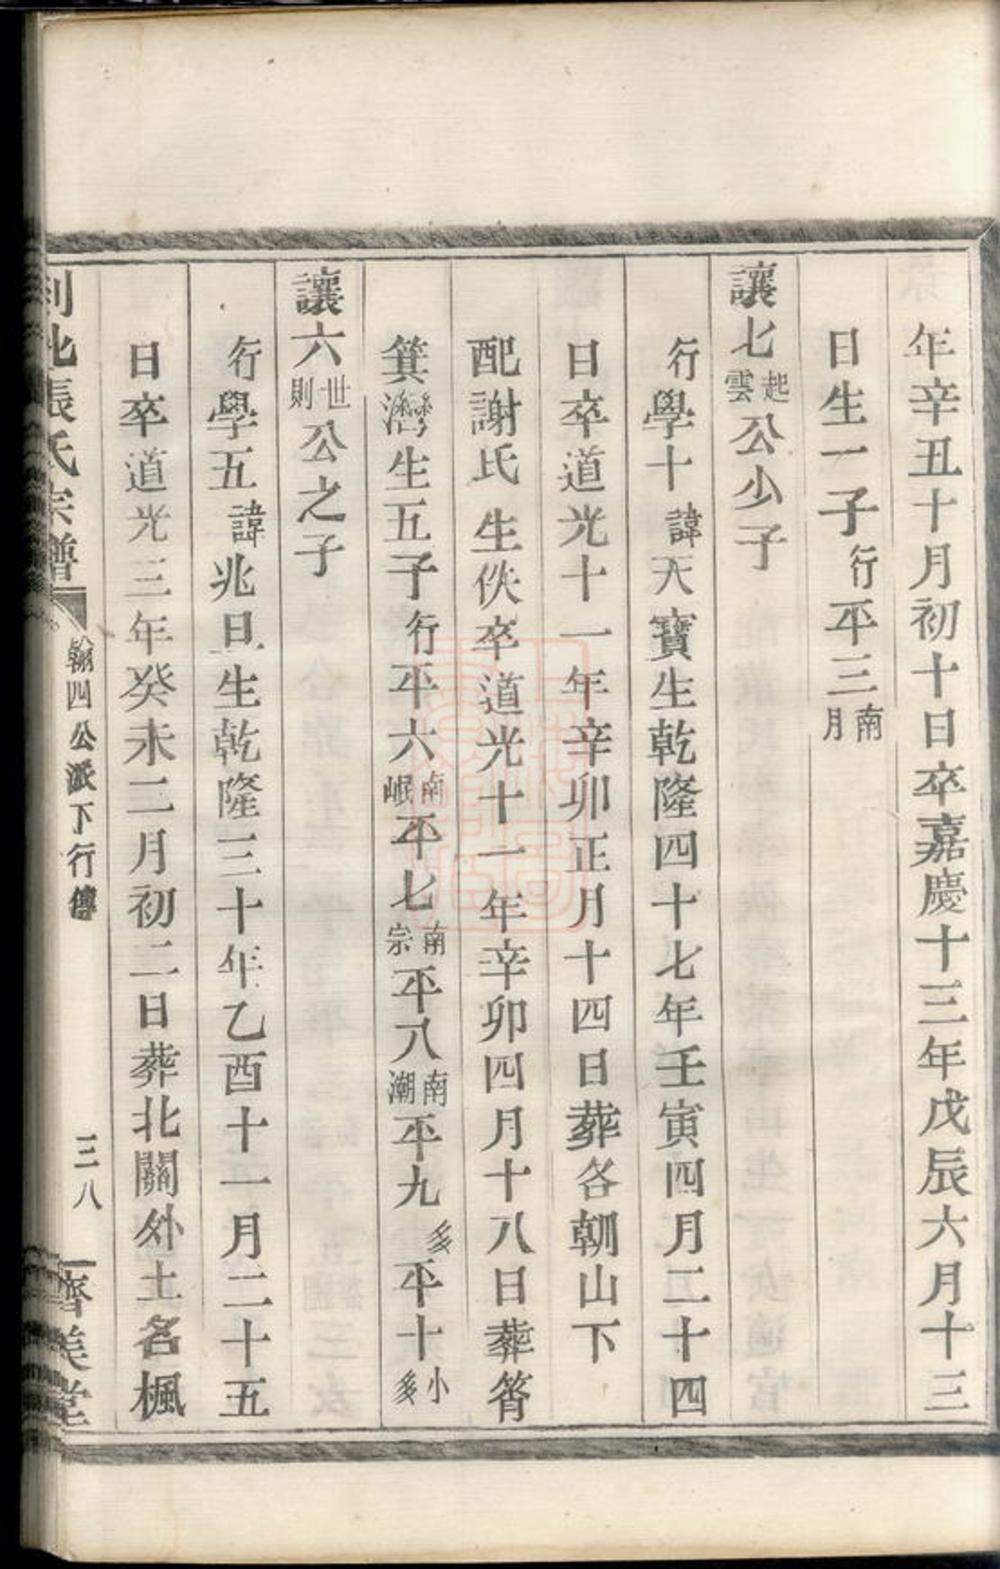 年辛丑十月初十日卒嘉慶十三年戊辰六月十三
日生一子行平三南月
讓七起雲公少子
行學十諱天寶生乾隆四十七年壬寅四月二十四
日卒道光十一年辛卯正月十四日葬各朝山下
配謝氏生佚卒道光十一年辛卯四月十八日葬筲
箕灣生五子行平六南岷平七南宗平八南潮平九多平十小多
讓六世則公之子
行學五諱兆日生乾隆三十年乙酉十一月二十五
日卒道光三年癸未二月初二日葬北關外土名楓
北張氏宗譜 翰四公派下行傳 三八 一齊美堂